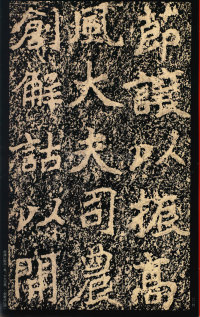 節護以振高
風大夫司農
創解詁以開